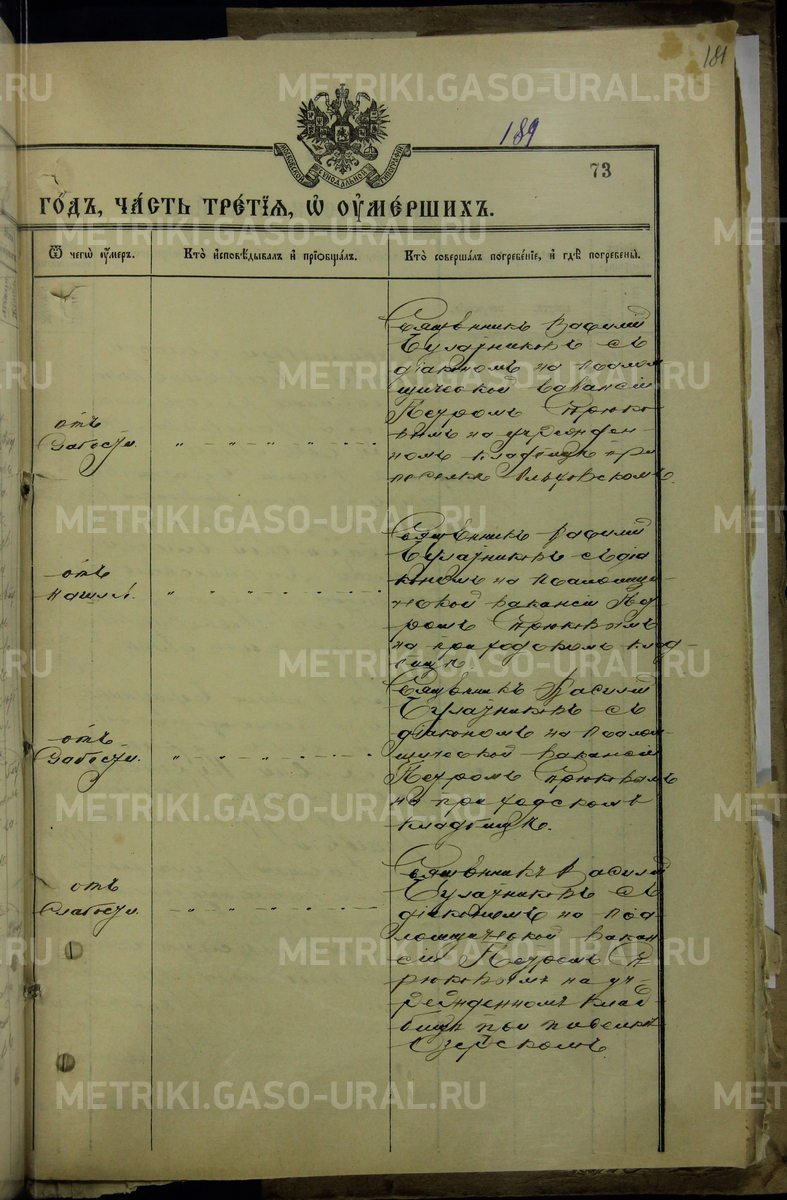 181
189
МОСКОВСКОЙ СѴНОДАЛЬНОЙ ТИПОГРАФІИ
73
ГО́ДЪ, ЧА́СТЬ ТРЕ́ТІѦ, Ѡ ОУМЕ́РШИХЪ.
Ѿ чегѡ̀ оу́меръ.
Кто̀ и҆сповѣ́дывалъ и҆ прїѡбща́лъ.
Кто̀ соверша́лъ погребе́нїе, и҆ гдѣ̀ погребены̀.
отъ
Слабости.
Священникъ Василій
Булатниковъ съ
діакономъ на псалом
щической вакансіи
Петромъ Прюко
вымъ на учрежден-
номъ кладбищѣ при
поселкѣ Ольховскомъ.
отъ
Кашля.
Священникъ Василій
Булатниковъ съ діа
кономъ на псаломщи-
ческой вакансіи Пе
тромъ Прюковымъ
на приходскомъ клад-
бищѣ.
отъ
Слабости.
Священникъ Василій
Булатниковъ съ
діакономъ на псалом
щической вакансіи
Петромъ Прюковымъ
на приходскомъ
кладбищѣ.
отъ
Слабости.
Священникъ Василій
Булатниковъ съ
діакономъ на пса
ломщической вакан
сіи Петромъ П
рюковымъ на уч-
режденномъ клад
бищѣ при поселкѣ
Озерскомъ.
METRIKI.GASO-URAL.RU